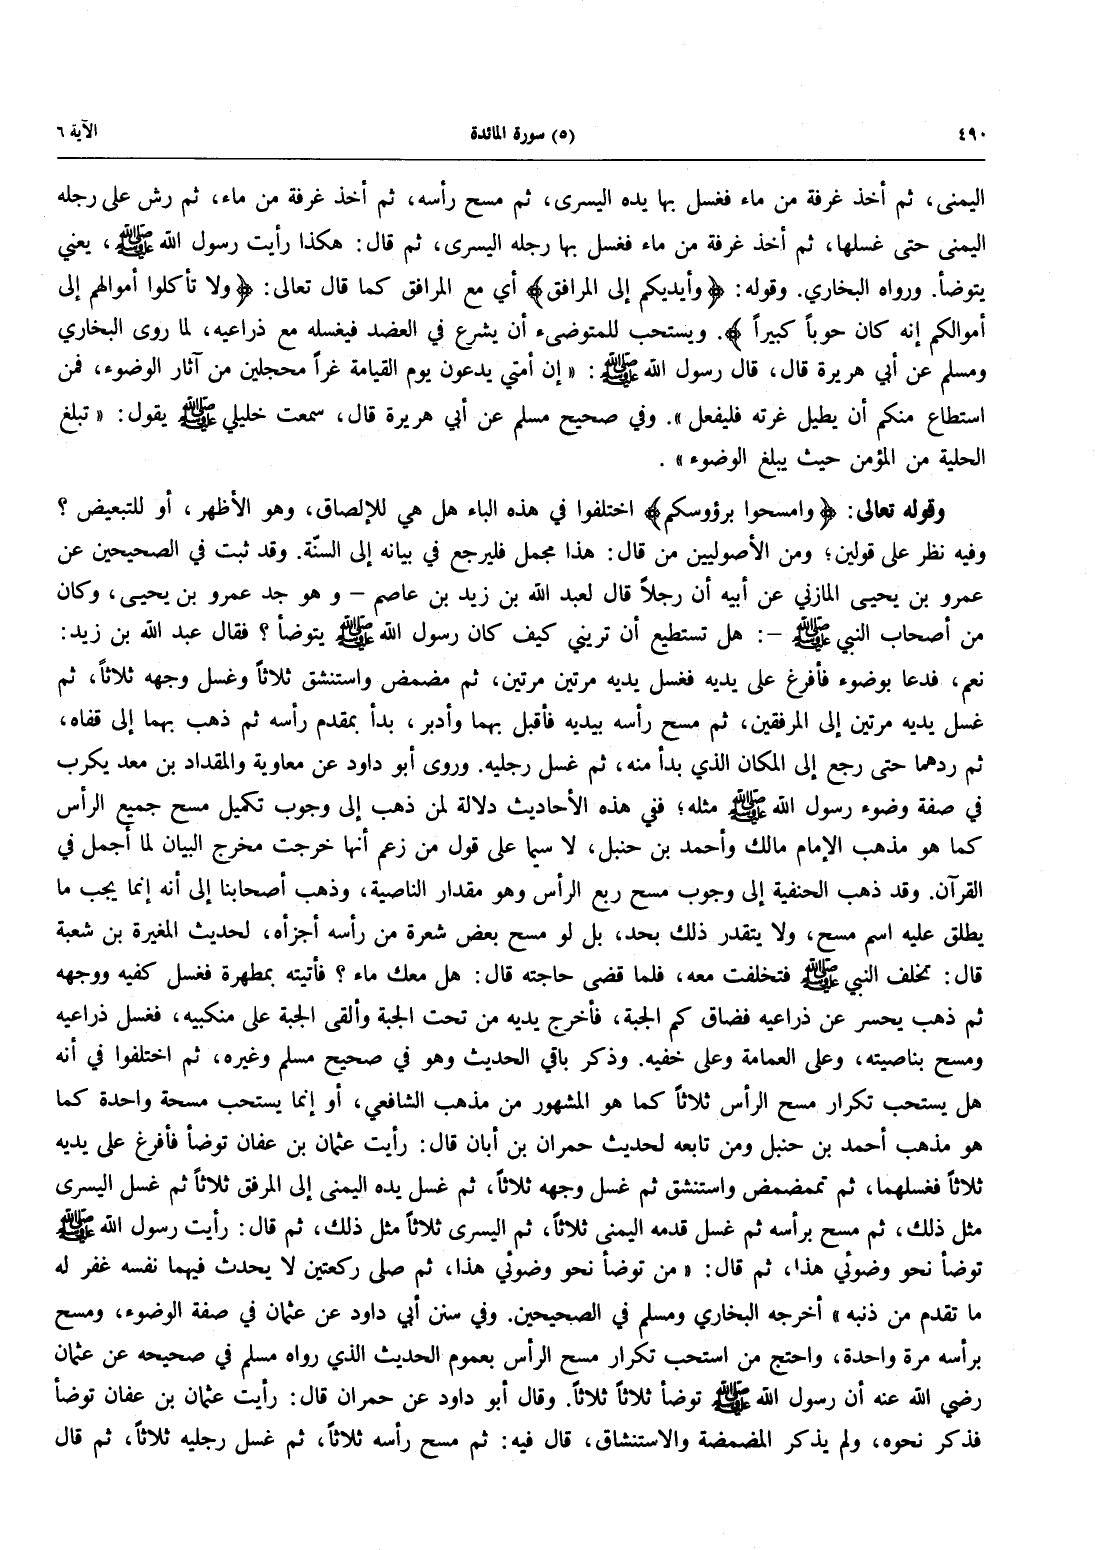 ٤٩٠ (٥) سورة المائدة الآية ٦
اليمنى، ثم أخذ غرفة من ماء فغسل بها يده اليسرى، ثم مسح رأسه، ثم أخذ غرفة من ماء، ثم رش على رجله
اليمنى حتى غسلها، ثم أخذ غرفة من ماء فغسل بها رجله اليسرى، ثم قال: هكذا رأيت رسول الله ﷺ، يعني
يتوضأ. ورواه البخاري. وقوله: ﴿وأيديكم إلى المرافق﴾ أي مع المرافق كما قال تعالى: ﴿ولا تأكلوا أموالهم إلى
أموالكم إنه كان حوباً كبيراً ﴾. ويستحب للمتوضىء أن يشرع في العضد فيغسله مع ذراعيه، لما روى البخاري
ومسلم عن أبي هريرة قال، قال رسول الله ﷺ : « إن أمتي يدعون يوم القيامة غراً محجلين من آثار الوضوء، فمن
استطاع منكم أن يطيل غرته فليفعل ». وفي صحيح مسلم عن أبي هريرة قال، سمعت خليلي ﷺ يقول: « تبلغ
الحلية من المؤمن حيث يبلغ الوضوء » .
وقوله تعالى: ﴿وامسحوا برؤوسكم﴾ اختلفوا في هذه الباء هل هي للإلصاق، وهو الأظهر، أو للتبعيض ؟
وفيه نظر على قولين؛ ومن الأصوليين من قال: هذا مجمل فليرجع في بيانه إلى السنّة. وقد ثبت في الصحيحين عن
عمرو بن يحيى المازني عن أبيه أن رجلاً قال لعبد الله بن زيد بن عاصم – و هو جد عمرو بن يحيى، وكان
من أصحاب النبي ﷺ –: هل تستطيع أن تريني كيف كان رسول الله ﷺ يتوضأ ؟ فقال عبد الله بن زيد:
نعم، فدعا بوضوء فأفرغ على يديه فغسل يديه مرتين مرتين، ثم مضمض واستنشق ثلاثاً وغسل وجهه ثلاثاً، ثم
غسل يديه مرتين إلى المرفقين، ثم مسح رأسه بيديه فأقبل بهما وأدبر ، بدأ بمقدم رأسه ثم ذهب بهما إلى قفاه،
ثم ردهما حتى رجع إلى المكان الذي بدأ منه، ثم غسل رجليه. وروى أبو داود عن معاوية والمقداد بن معد يكرب
في صفة وضوء رسول الله ﷺ مثله؛ ففي هذه الأحاديث دلالة لمن ذهب إلى وجوب تكميل مسح جميع الرأس
كما هو مذهب الإمام مالك وأحمد بن حنبل، لا سيما على قول من زعم أنها خرجت مخرج البيان لما أجمل في
القرآن. وقد ذهب الحنفية إلى وجوب مسح ربع الرأس وهو مقدار الناصية، وذهب أصحابنا إلى أنه إنما يجب ما
يطلق عليه اسم مسح، ولا يتقدر ذلك بحد، بل لو مسح بعض شعرة من رأسه أجزأه، لحديث المغيرة بن شعبة
قال: تخلف النبي ﷺ فتخلفت معه، فلما قضى حاجته قال: هل معك ماء ؟ فأتيته بمطهرة فغسل كفيه ووجهه
ثم ذهب يحسر عن ذراعيه فضاق كم الجبة، فأخرج يديه من تحت الجبة وألقى الجبة على منكبيه، فغسل ذراعيه
ومسح بناصيته، وعلى العمامة وعلى خفيه. وذكر باقي الحديث وهو في صحيح مسلم وغيره، ثم اختلفوا في أنه
هل يستحب تكرار مسح الرأس ثلاثاً كما هو المشهور من مذهب الشافعي، أو إنما يستحب مسحة واحدة كما
هو مذهب أحمد بن حنبل ومن تابعه لحديث حمران بن أبان قال: رأيت عثمان بن عفان توضأ فأفرغ على يديه
ثلاثاً فغسلهما، ثم تمضمض واستنشق ثم غسل وجهه ثلاثاً، ثم غسل يده اليمنى إلى المرفق ثلاثاً ثم غسل اليسرى
مثل ذلك، ثم مسح برأسه ثم غسل قدمه اليمنى ثلاثاً، ثم اليسرى ثلاثاً مثل ذلك، ثم قال: رأيت رسول الله ﷺ
توضأ نحو وضوئي هذا، ثم قال: « من توضأ نحو وضوئي هذا، ثم صلى ركعتين لا يحدث فيهما نفسه غفر له
ما تقدم من ذنبه » أخرجه البخاري ومسلم في الصحيحين. وفي سنن أبي داود عن عثمان في صفة الوضوء، ومسح
برأسه مرة واحدة، واحتج من استحب تكرار مسح الرأس بعموم الحديث الذي رواه مسلم في صحيحه عن عثمان
رضي الله عنه أن رسول الله ﷺ توضأ ثلاثاً ثلاثاً. وقال أبو داود عن حمران قال: رأيت عثمان بن عفان توضأ
فذكر نحوه، ولم يذكر المضمضة والاستنشاق، قال فيه: ثم مسح رأسه ثلاثاً، ثم غسل رجليه ثلاثاً، ثم قال